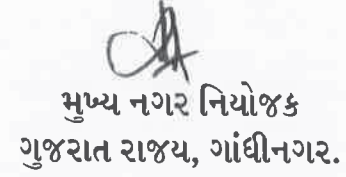 મુખ્ય નગર નિયોજક
ગુજરાત રાજય, ગાંધીનગર.